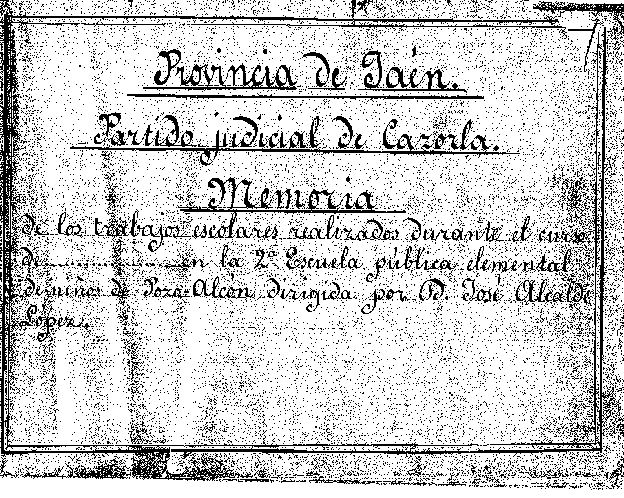 Provincia de Jaén.
Partido judicial de Cazorla.
Memoria
de los trabajos escolares realizados durante el curso
de ................ en la 2ª Escuela pública elemental
de niños de Pozo-Alcón dirigida por D. José Alcalde
López.